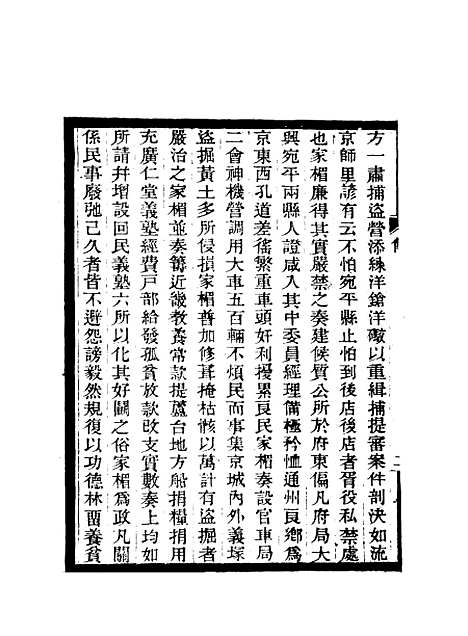 方一肅捕盜營添練洋鎗洋礮以重緝捕提審案件剖決如流
京師里諺有云不怕宛平縣止怕到後店後店者胥役私禁處
也家楣廉得其實嚴禁之奏建候質公所於府東偏凡府局大
興宛平兩縣人證咸入其中委員經理備極矜恤通州良鄉爲
京東西孔道差徭繁重車頭奸利擾累良民家楣奏設官車局
二會神機營調用大車五百輛不煩民而事集京城內外義塚
盜掘黃土多所侵損家楣善加修葺掩枯骸以萬計有盜掘者
嚴治之家楣並奏籌近畿教養常款提蘆台地方船捐糧捐用
充廣仁堂義塾經費戶部給發孤貧放款改支實數奏上均如
所請幷增設回民義塾六所以化其好鬭之俗家楣爲政凡關
係民事廢弛已久者皆不避怨謗毅然規復以功德林畱養貧